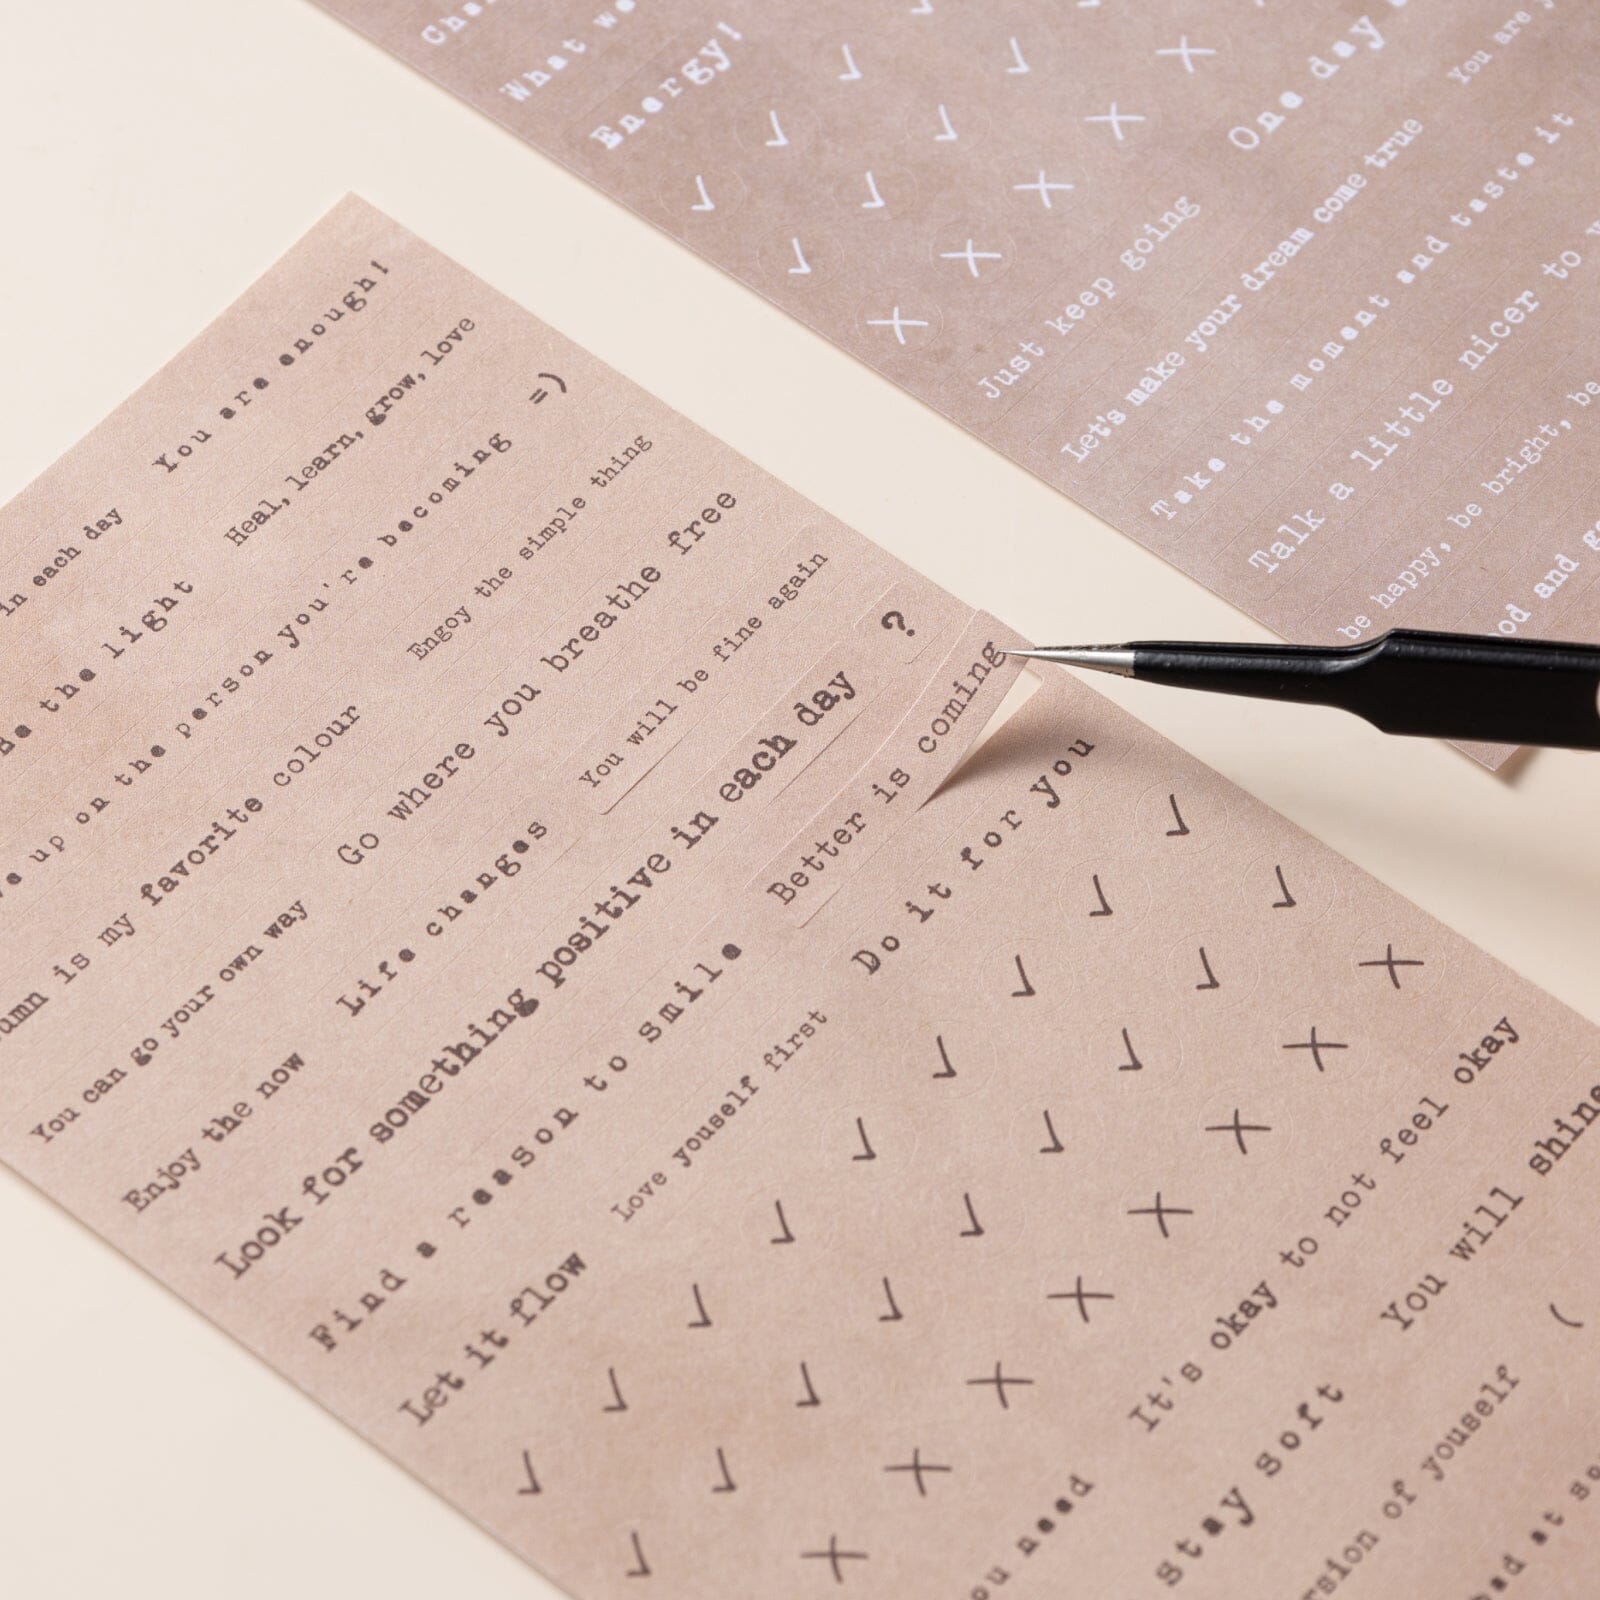 What
Energy!
One day
You are
Just keep going
Let's make your dream come true
Take the moment and taste it
Talk a little nicer to
be happy, be bright, be
and
in each day
You are enough!
Be the light
Heal, learn, grow, love
up on the person you're becoming =)
is my favorite colour
Engoy the simple thing
You can go your own way
Go where you breathe free
Enjoy the now
Life changes
You will be fine again
Look for something positive in each day ?
Find a reason to smile
Better is coming
Let it flow
Love youself first
Do it for you
need
It's okay to not feel okay
stay soft
You will shine
of youself (
at